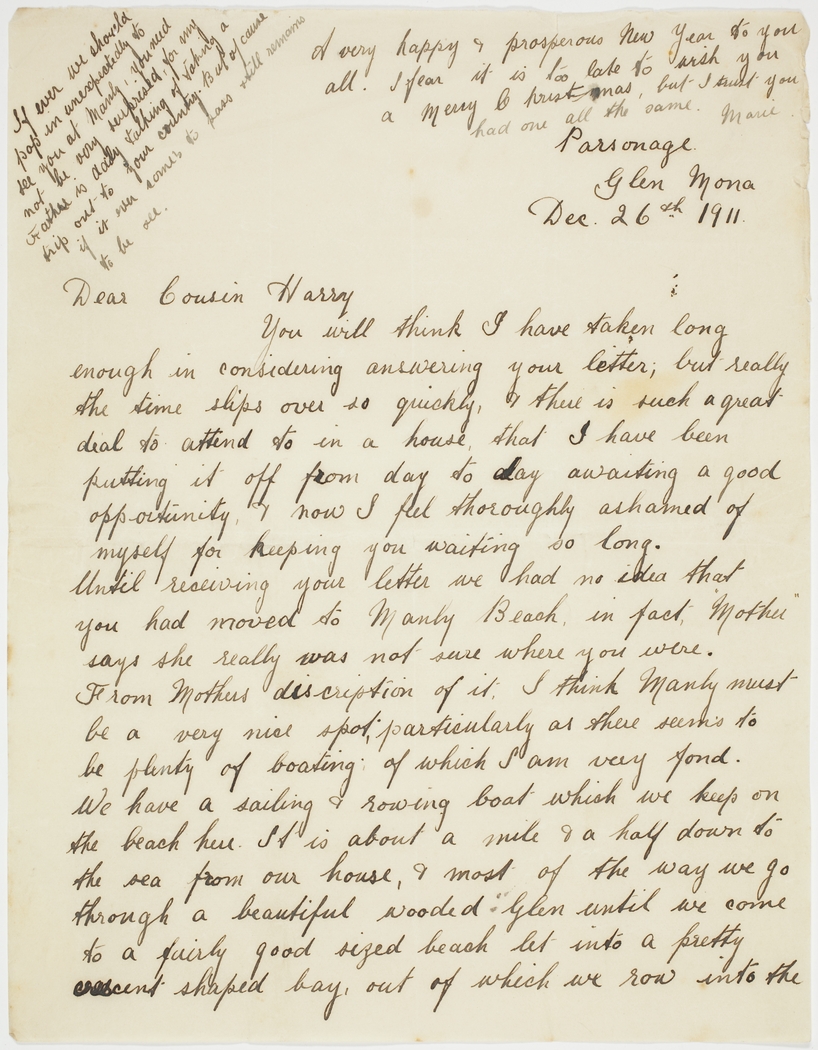 If ever we should
pop in unexpectedly to
see you at Manly, you need
not be very surprised for my
Father is daily talking of taking a
trip out to your country. But of cause
if it ever comes to pass still remains
to be see.
A very happy & prosperous New Year to you
all. I fear it is too late to wish you
a Merry Christmas, but I trust you
had one all the same. Marie.
Parsonage.
Glen Mona
Dec. 26th 1911.
Dear Cousin Harry
You will think I have taken long
enough in considering answering your letter; but really
the time slips over so quickly, & there is such a great
deal to attend to in a house, that I have been
putting it off from day to day awaiting a good
opportunity, & now I feel thoroughly ashamed of
myself for keeping you waiting so long.
Until receiving your letter we had no idea that
you had moved to Manly Beach, in fact, "Mother"
says she really was not sure where you were.
From Mothers discription of it, I think Manly must
be a very nice spot, particularly as there seems to
be plenty of boating, of which I am very fond.
We have a sailing & rowing boat which we keep on
the beach here. It is about a mile & a half down to
the sea from our house, & most of the way we go
through a beautiful wooded Glen until we come
to a fairly good sized beach let into a pretty
crescent shaped bay, out of which we row into the